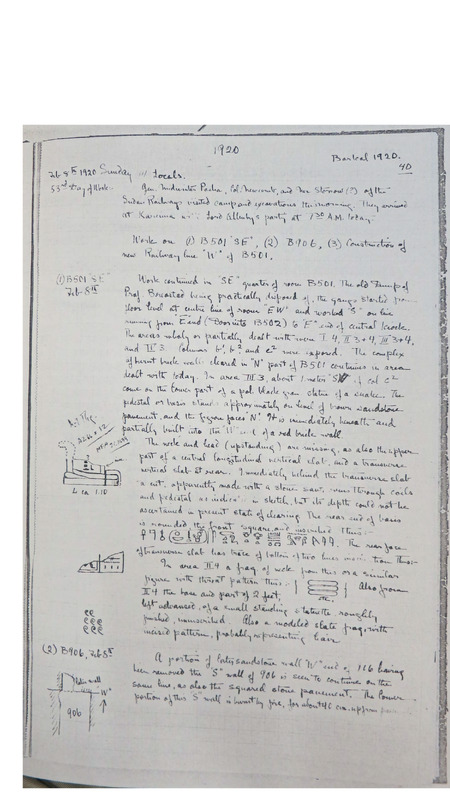 1920
Barkal 1920.
40
Feb 8th 1920 Sunday 111 Locals.
53rd day of Work. Gen. Midwinter Pasha, Col. Newcombe, and Mr. (?) of the
Sudan Railways visited camp and excavations this morning. They arrived
at Kareima with Lord Allenby's party at 7.30 A.M. today.
Work on (1) B501 "SE", (2) B906, (3) Construction of
new Railway line "W" of B501.
(1) B501 "SE"
Feb 8th
Work continued in "SE" quarter of room B501. The old dump of
Prof. Breasted being practically disposed of, the gangs started from
floor level at centre line of room "EW" and worked "S" on line
running from "E" end (= Doorsite B502) to "E" end of central kiosk.
The areas wholly or partially dealt with were I 4, II 3+4, III 3+4,
and IV 3. Columns b², b³ and c² were exposed. The complex
of burnt brick walls cleared in "N" part of B501 continues in area
dealt with today. In area III 3, about 1 meter "S" of col c²
came on the lower part of a pol. black gran. statue of a snake. The
pedestal or basis stands approximately on level of brown sandstone
pavement, and the figure faces "N". It is immediately beneath and
partially built into the "W" end of a red brick wall.
The neck and head (upstanding) are missing, as also the upper
part of a central longitudinal vertical slab, and a transverse
vertical slab at rear. Immediately behind the transverse slab
a cut, apparently made with a stone saw, runs through coils
and pedestal as indicated in sketch, but its depth could not be
ascertained in present state of clearing. The rear end of basis
is rounded, the front square, and inscribed thus:-
The rear face
of transverse slab has trace of bottom of two lines inscription thus:-
In area II 4 a frag of neck from this or a similar
figure with throat pattern thus:- Also from
II 4 the base and part of 2 feet,
left advanced, of a small standing statuette, roughly
finished, uninscribed. Also a modeled slate frag. with
incised pattern, probably representing hair.
(2) B906, Feb 8th
A portion of later sandstone wall "W" end of 906 having
been removed the "S" wall of 906 is seen to continue on the
same line, as also the squared stone pavement. The lower
portion of this "S" wall is burnt by fire, for about 40 cm. upper
later wall
W
906